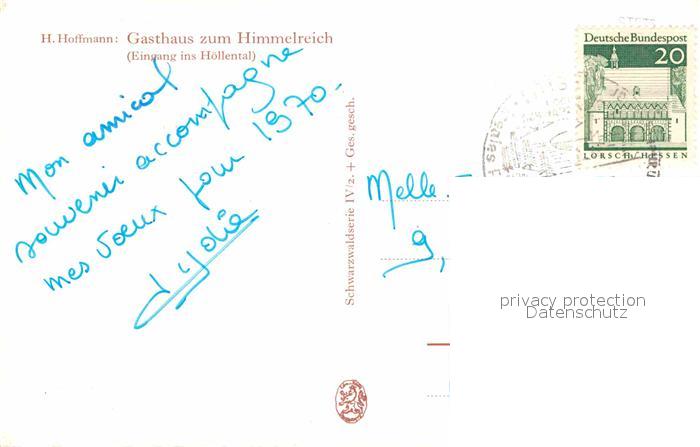 H. Hoffmann: Gasthaus zum Himmelreich
(Eingang ins Höllental)
Mon amical
souvenir accompagne
mes voeux pour 1970.
Lydie
Schwarzwaldserie IV/2. + Ges. gesch.
Deutsche Bundespost
20
LORSCH/HESSEN
Melle.
9,
privacy protection
Datenschutz